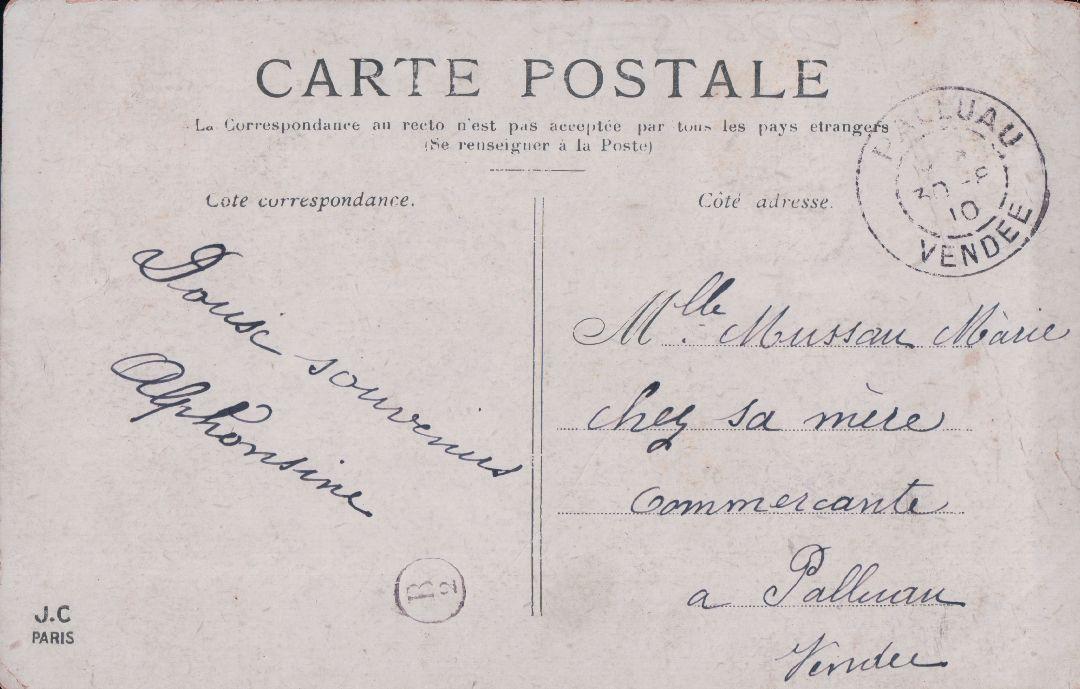 CARTE POSTALE
La Correspondance au recto n'est pas acceptée par tous les pays etrangers
(Se renseigner à la Poste)
Cote correspondance.
Côté adresse.
PALLUAU
30 -8
10
VENDEE
Doux souvenirs
Alphonsine
Mlle Mussau Màrie
chez sa mère
Commercante
a Palluau
Vendee
B
2
J.C
PARIS